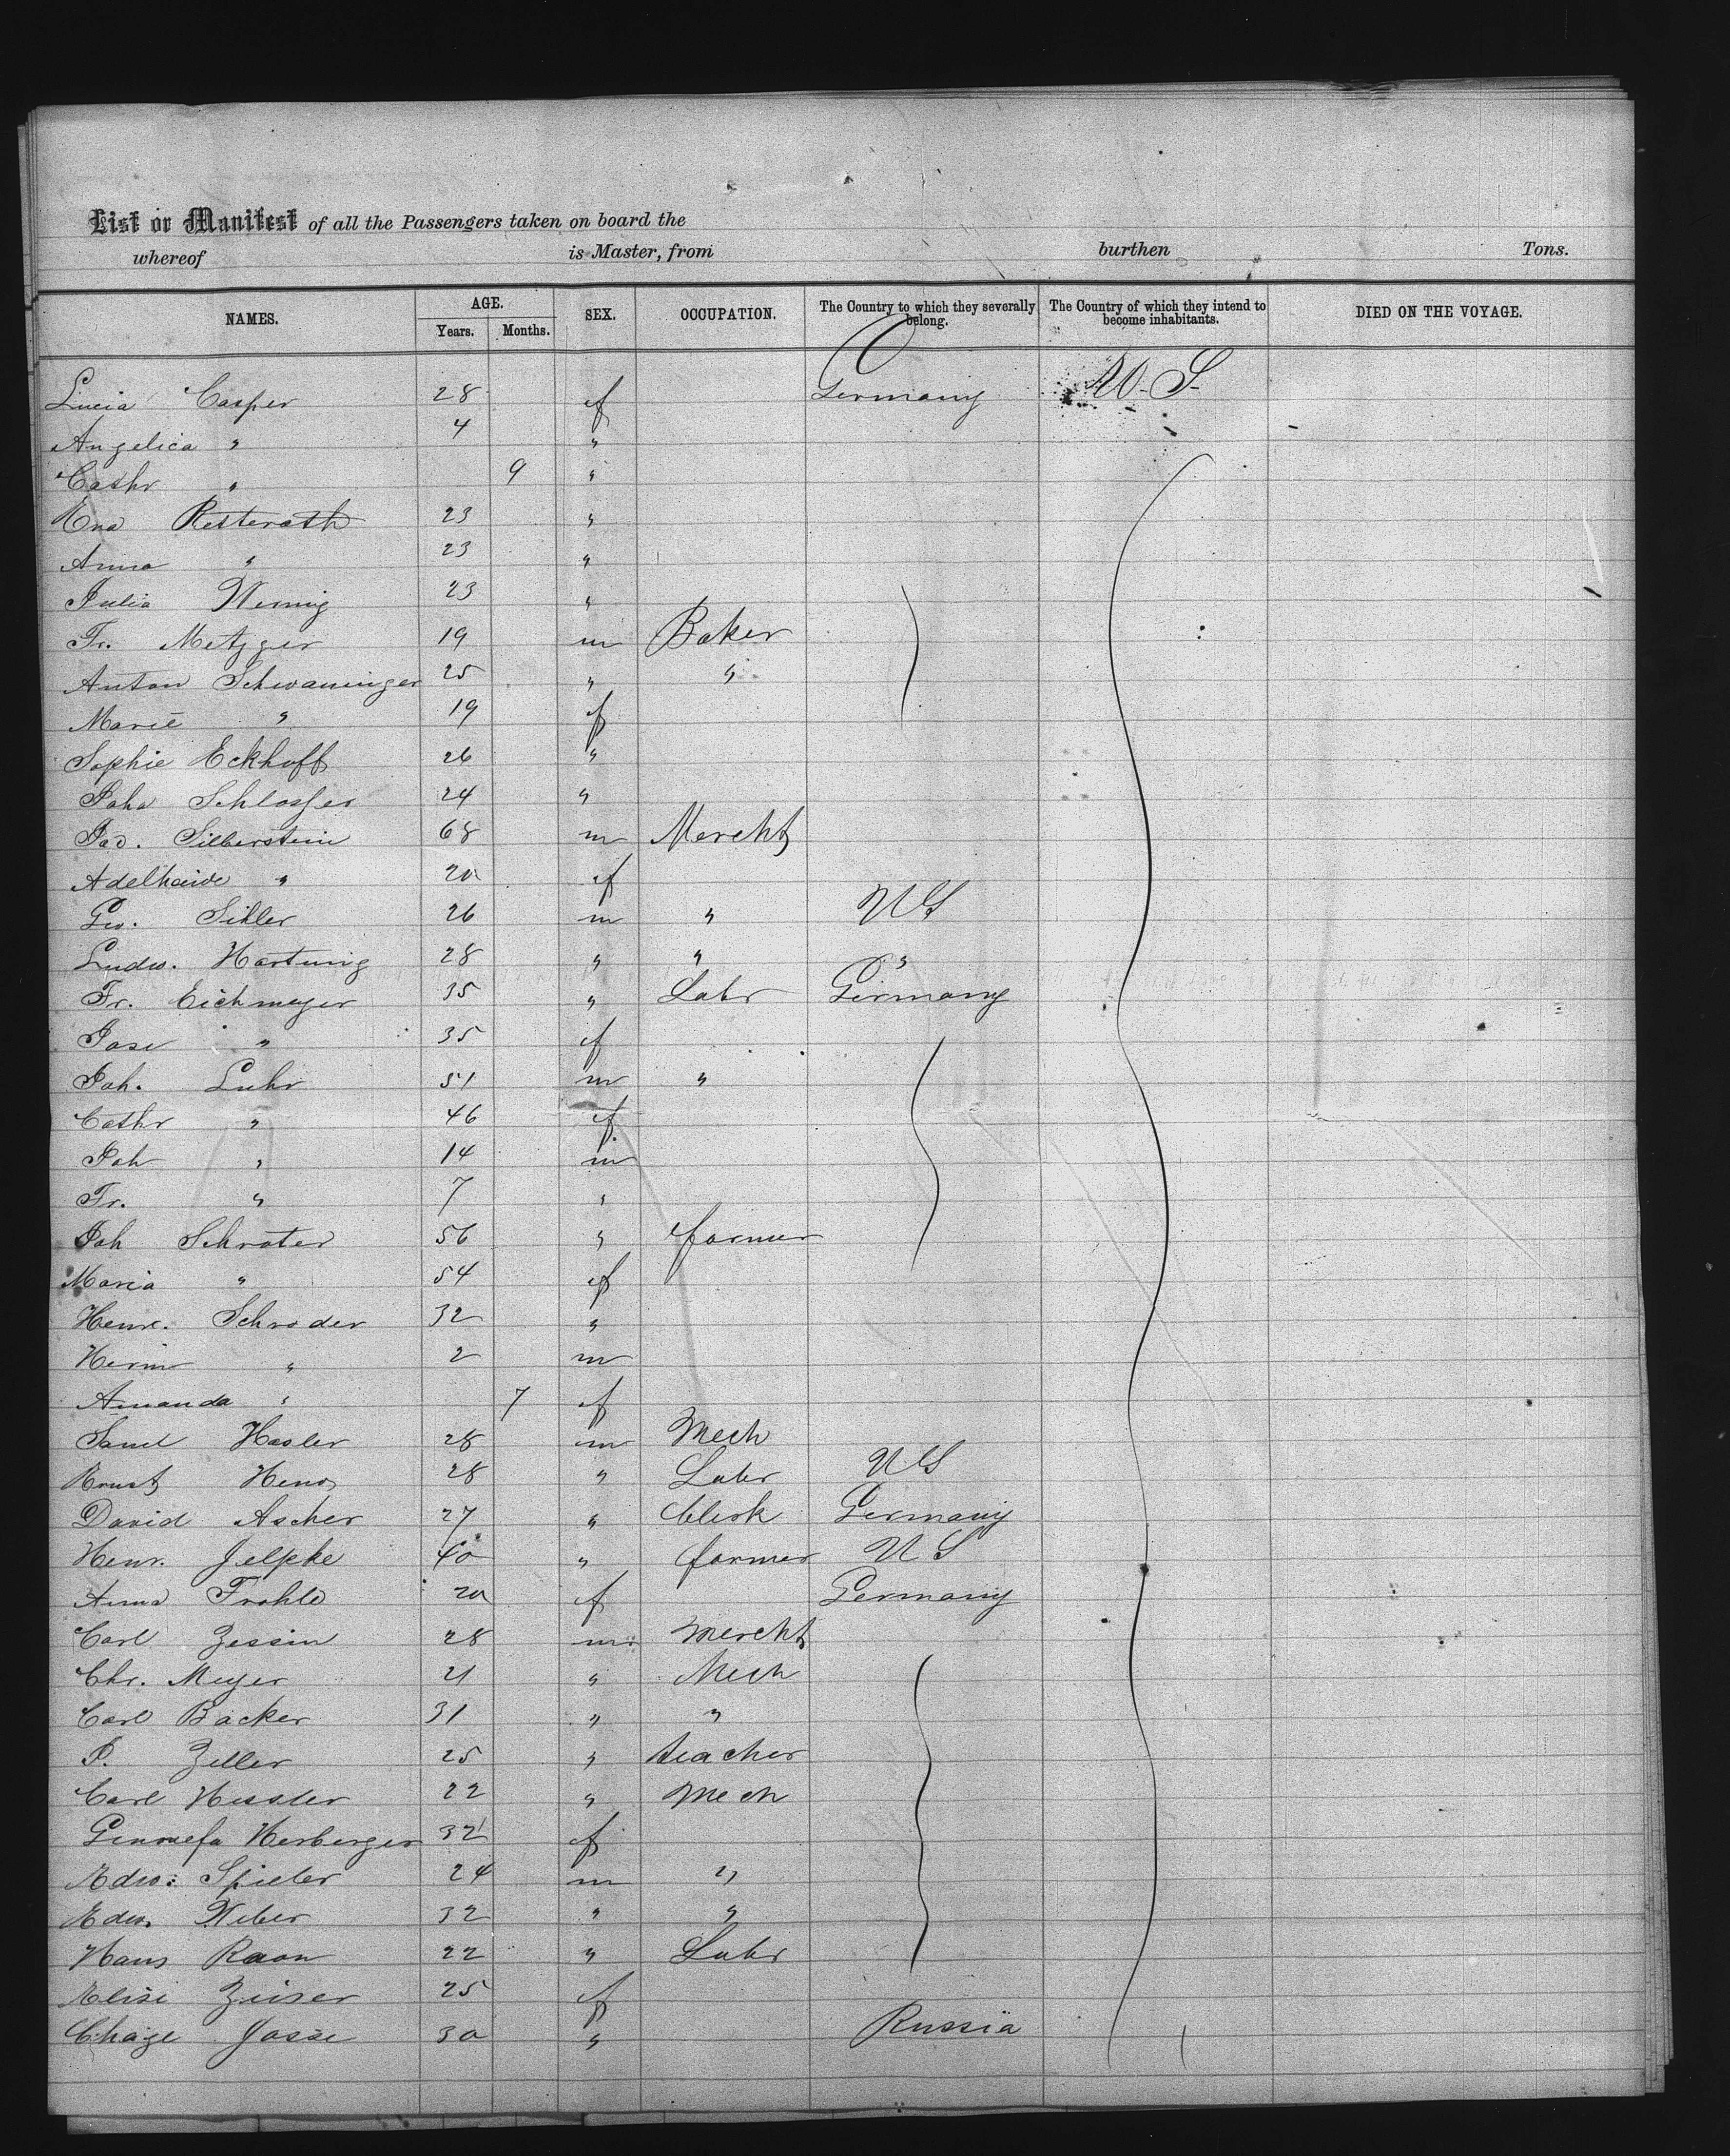 List or Manifest of all the Passengers taken on board the
whereof is Master, from burthen Tons.
NAMES. AGE. Years. Months. SEX. OCCUPATION. The Country to which they severally belong. The Country of which they intend to become inhabitants. DIED ON THE VOYAGE.
Lucia Casper 28 f Germany U. S.
Angelica " 4 "
Cathr " 9 "
Eva Resterath 23 "
Anna " 23 "
Julia Wernig 23 "
Fr. Metzger 19 m Baker
Anton Schwaninger 25 " "
Marie " 19 f
Sophie Eckhoff 26 "
Joha Schlosser 24 "
Jac. Silberstein 68 m Mercht
Adelheide " 20 f
Geo. Sihler 26 m " US
Ludw. Hartung 28 " " "
Fr. Eichmeyer 35 " Labr Germany
Jose " 35 f
Joh. Luhr 51 m "
Cathr " 46 f
Joh " 14 m
Fr. " 7 "
Joh Schroter 56 " farmer
Maria " 54 f
Henr. Schroder 32 "
Herm " 2 m
Amanda " 7 f
Saml Hasler 28 m Mech
Ernst 28 " Labr US
David Ascher 27 " Clerk Germany
Henr. Jelpke 40 " farmer US
Anna Frohle 20 f Germany
Carl Zessin 28 m mercht
Chr. Meyer 21 " Mech
Carl Backer 31 " "
P. Zeller 25 " teacher
Carl Hessler 22 " Mech
Genovefa Herberger 32 f
Edw. Spieler 24 m "
Edw. Weber 32 " "
Hans Raon 22 " Labr
Elise Zeiser 25 f
Chaje Josse 30 " Russia